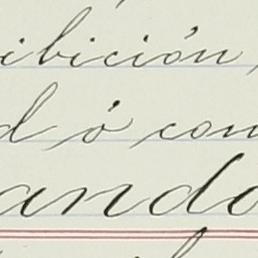 ibición
d ó con
ando